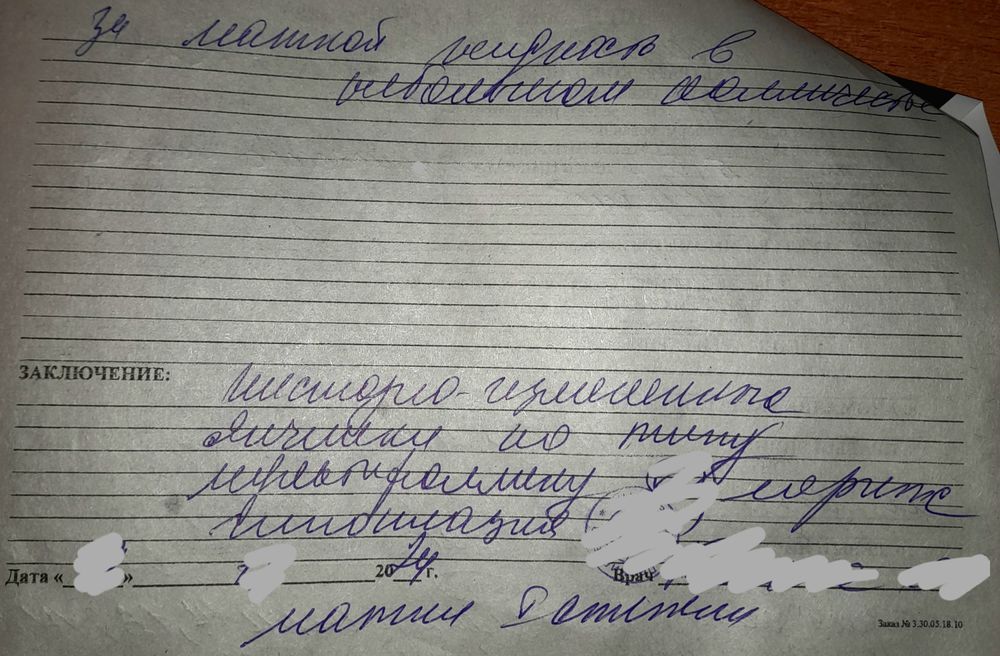 За маткой жидкость в
небольшом количестве
ЗАКЛЮЧЕНИЕ:
кистозно-измененные
яичники по типу
мультифоллику
гипоплазия
Дата « » 2024 г. Врач
матки I степени
Заказ № 3.30.05.18.10